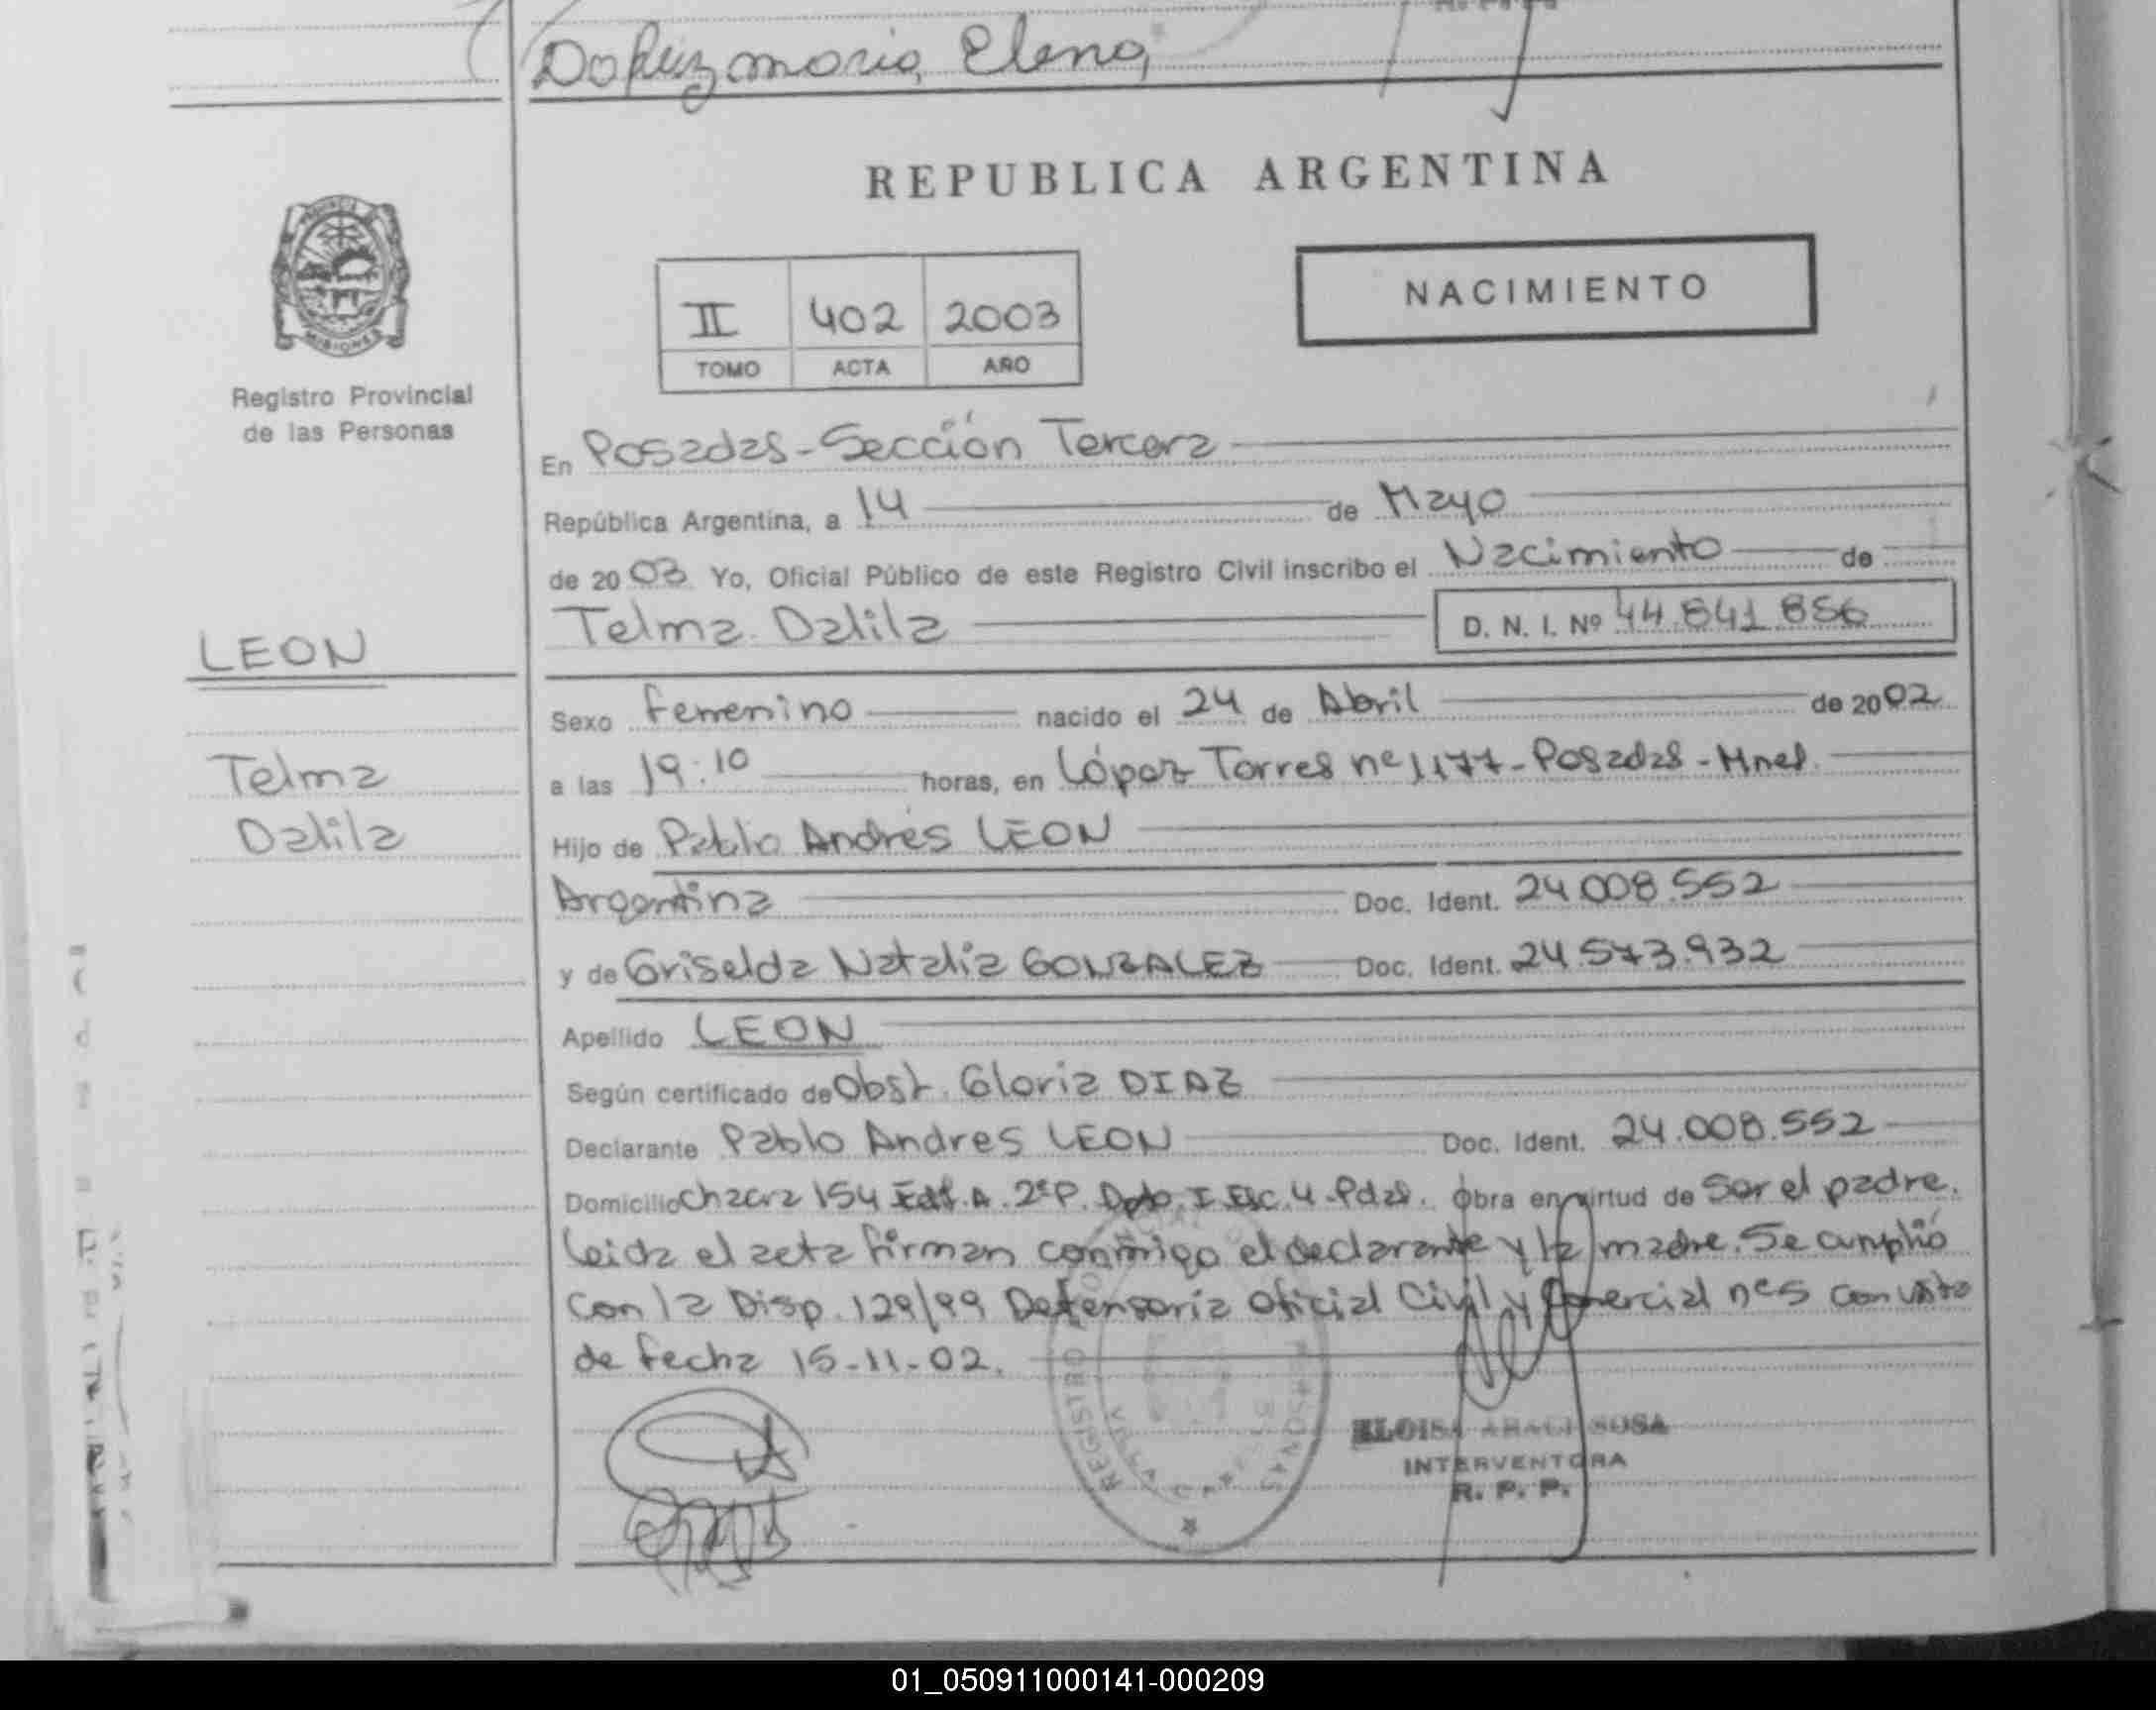 Maria Elena
REPUBLICA ARGENTINA
NACIMIENTO
II 402 2003
TOMO ACTA AÑO
MISIONES
Registro Provincial
de las Personas
En Posadas-Sección Tercera
República Argentina, a 14 de Mayo
de 2003 Yo, Oficial Público de este Registro Civil inscribo el Nacimiento de
Telma Dalila D. N. I. Nº 44.841.856
LEON
Telma
Dalila
Sexo femenino nacido el 24 de Abril de 2002
a las 19:10 horas, en López Torres nº 1177-Posadas-Mnes.
Hijo de Pablo Andrés LEON
Argentina Doc. Ident. 24.008.552
y de Griselda Natalia GONZALEZ Doc. Ident. 24.573.932
Apellido LEON
Según certificado de Obst. Gloria DIAZ
Declarante Pablo Andres LEON Doc. Ident. 24.008.552
Domicilio Chacra 154 Edf. A. 2ºP. Dpto. I Esc. 4-Pdas. Obra en virtud de Ser el padre.
Leida el acta firman conmigo el declarante y la madre. Se cumplió
con la Disp. 129/99 Defensoria Oficial Civil y Comercial nº5 con vista
de fecha 15-11-02.
REGISTRO PERSONAS
ELOISA ARACI SOSA
INTERVENTORA
R. P. P.
01_050911000141-000209